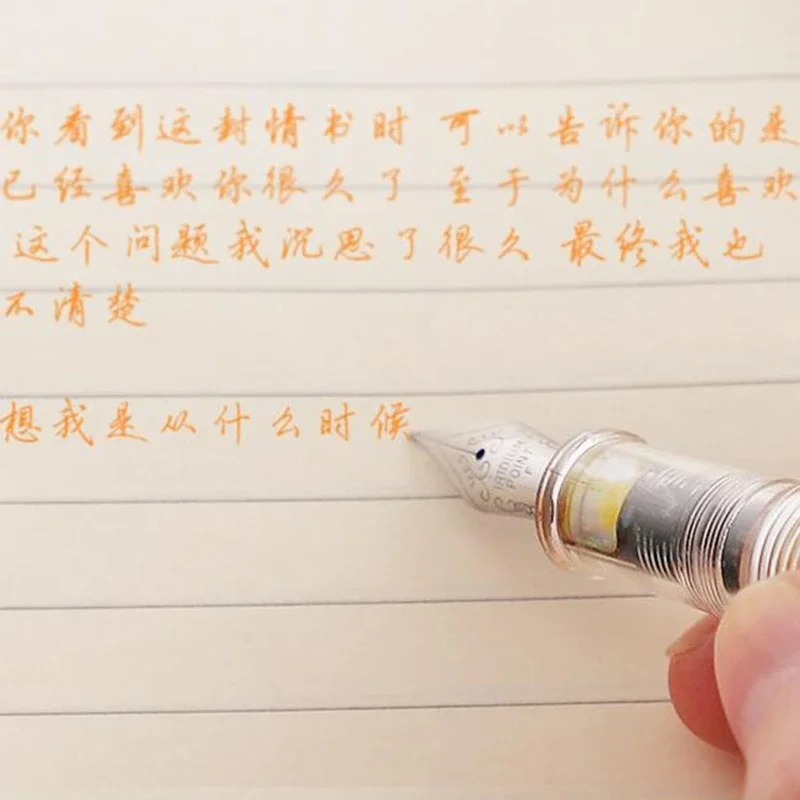 你看到这封情书时 可以告诉你的是
已经喜欢你很久了 至于为什么喜欢
这个问题我沉思了很久 最终我也
不清楚
想我是从什么时候
IRIDIUM
POINT